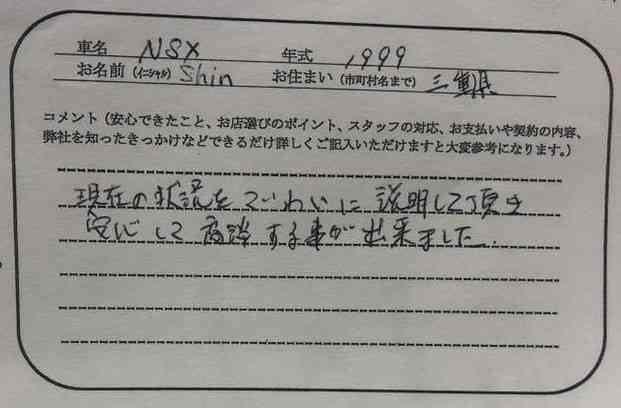 車名 NSX 年式 1999
お名前(イニシャル) Shin お住まい(市町村名まで) 三重県
コメント(安心できたこと、お店選びのポイント、スタッフの対応、お支払いや契約の内容、
弊社を知ったきっかけなどできるだけ詳しくご記入いただけますと大変参考になります。)
現在の状況をていねいに説明して頂き
安心して商談する事が出来ました.